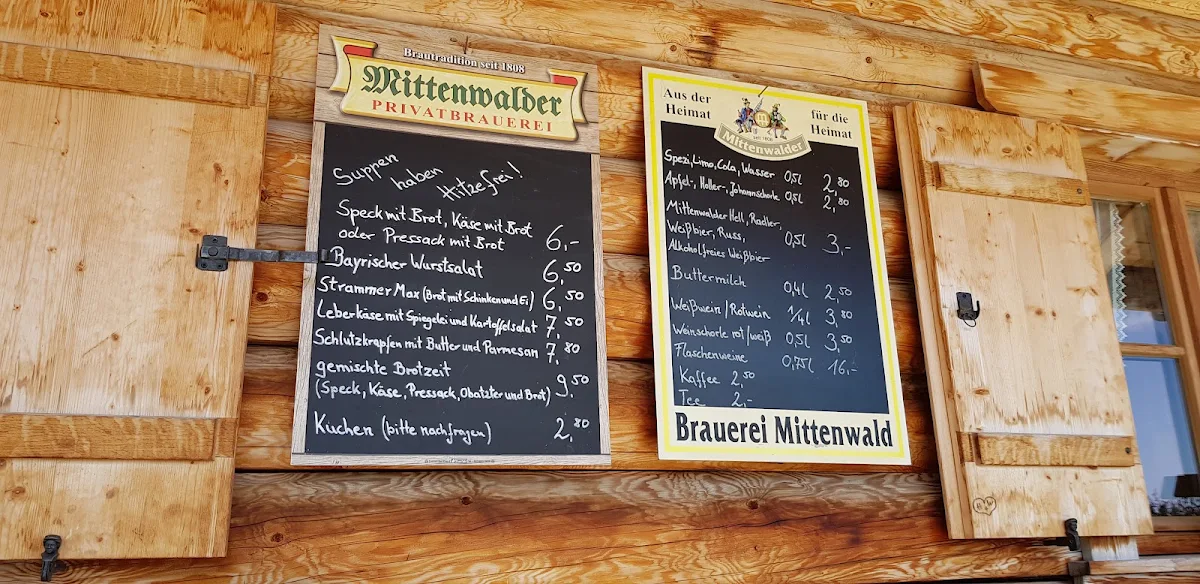 Brautradition seit 1808
Mittenwalder
PRIVATBRAUEREI
Suppen
haben
Hitzefrei!
Speck mit Brot, Käse mit Brot
oder Pressack mit Brot 6,-
Bayrischer Wurstsalat 6,50
Strammer Max (Brot mit Schinken und Ei) 6,50
Leberkäse mit Spiegelei und Kartoffelsalat 7,50
Schlutzkrapfen mit Butter und Parmesan 7,80
gemischte Brotzeit
(Speck, Käse, Pressack, Obatzter und Brot) 9,50
Kuchen (bitte nachfragen) 2,80
Aus der
Heimat
für die
Heimat
seit 1808
Mittenwalder
Spezi, Limo, Cola, Wasser 0,5l 2,80
Apfel-, Holler-, Johannschorle 0,5l 2,80
Mittenwalder Hell, Radler,
Weißbier, Russ, 0,5l 3,-
Alkoholfreies Weißbier
Buttermilch 0,4l 2,50
Weißwein/Rotwein 1/4l 3,80
Weinschorle rot/weiß 0,5l 3,50
Flaschenweine 0,75l 16,-
Kaffee 2,50
Tee 2,-
Brauerei Mittenwald